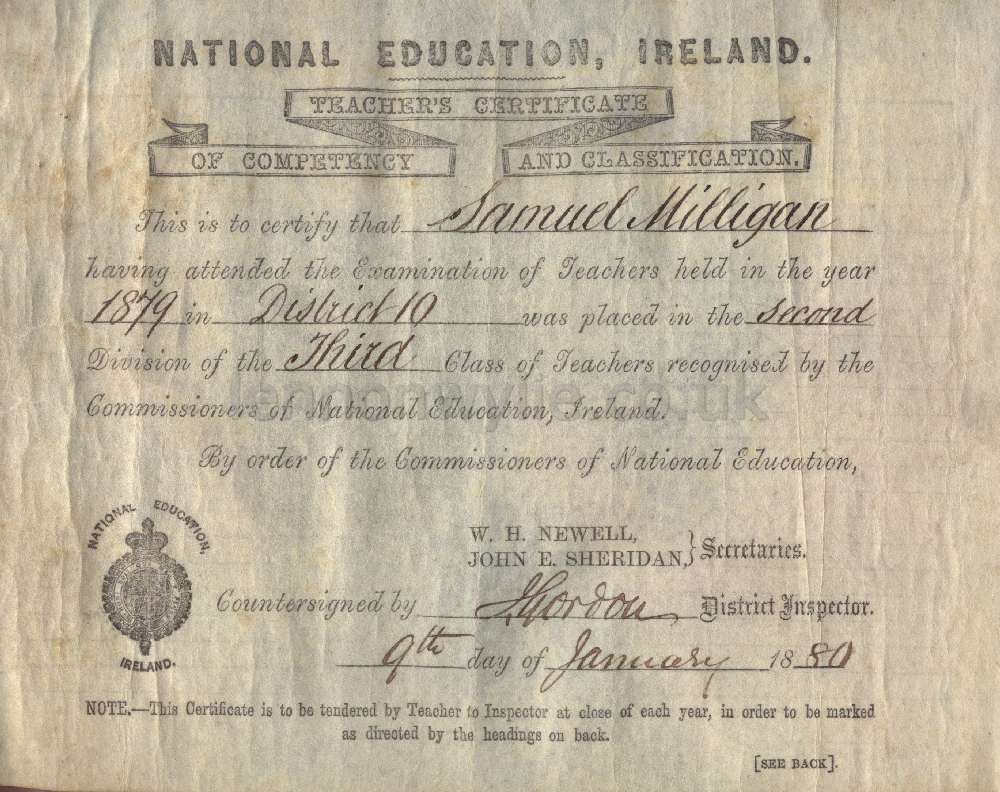 NATIONAL EDUCATION, IRELAND.
TEACHER'S CERTIFICATE
OF COMPETENCY AND CLASSIFICATION.
This is to certify that Samuel Milligan
having attended the Examination of Teachers held in the year
1879 in District 10 was placed in the Second
Division of the Third Class of Teachers recognised by the
Commissioners of National Education, Ireland.
By order of the Commissioners of National Education,
W. H. NEWELL,
JOHN E. SHERIDAN, } Secretaries.
NATIONAL EDUCATION,
IRELAND.
Countersigned by Gordon District Inspector.
9th day of January 1880
NOTE.—This Certificate is to be tendered by Teacher to Inspector at close of each year, in order to be marked
as directed by the headings on back.
[SEE BACK].